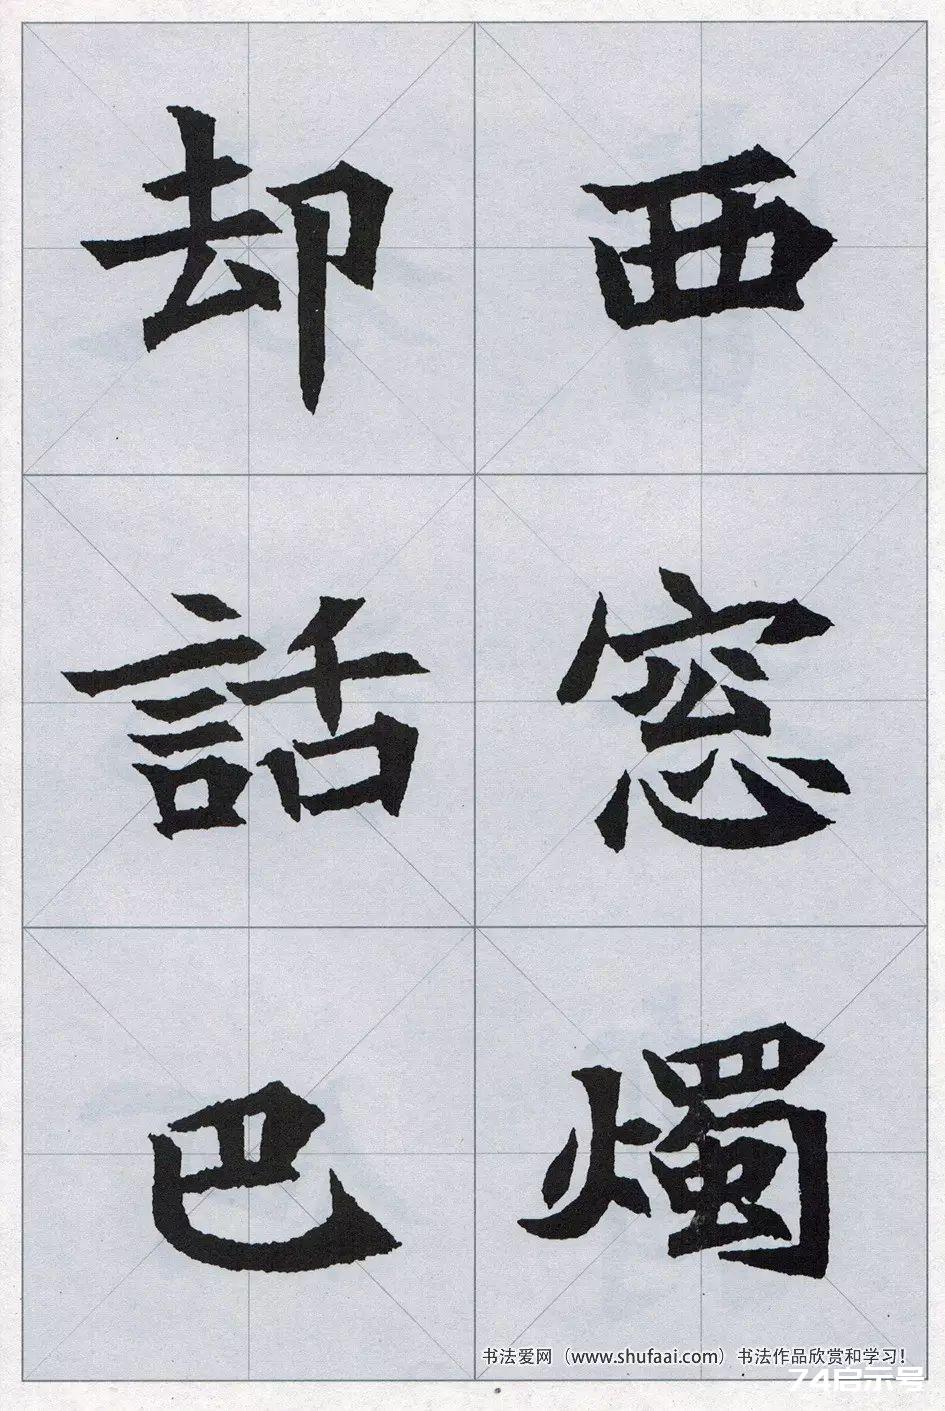 西窓燭
却話巴
书法爱网（www.shufaai.com）书法作品欣赏和学习！
74启示号